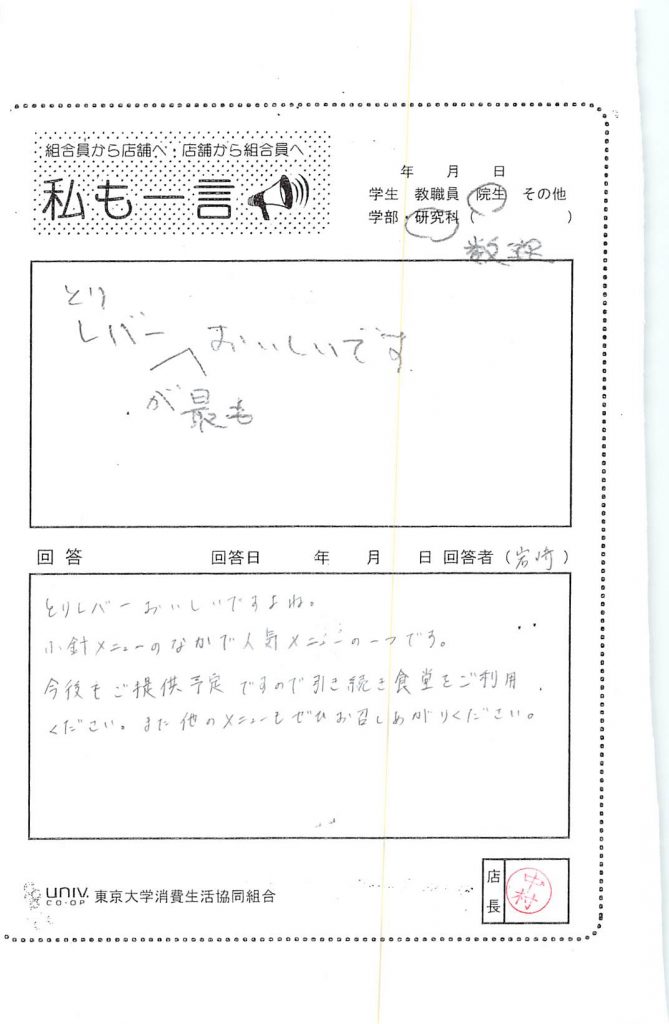 組合員から店舗へ・店舗から組合員へ
私も一言
年 月 日
学生 教職員 院生 その他
学部・研究科 ( )
数理
とり
レバー おいしいです
が最も
回答 回答日 年 月 日 回答者 (岩崎)
とりレバーおいしいですよね。
小針メニューのなかで人気メニューの一つです。
今後もご提供予定ですので引き続き食堂をご利用
ください。また他のメニューもぜひお召しあがりください。
UNIV. CO-OP 東京大学消費生活協同組合
店長
中村